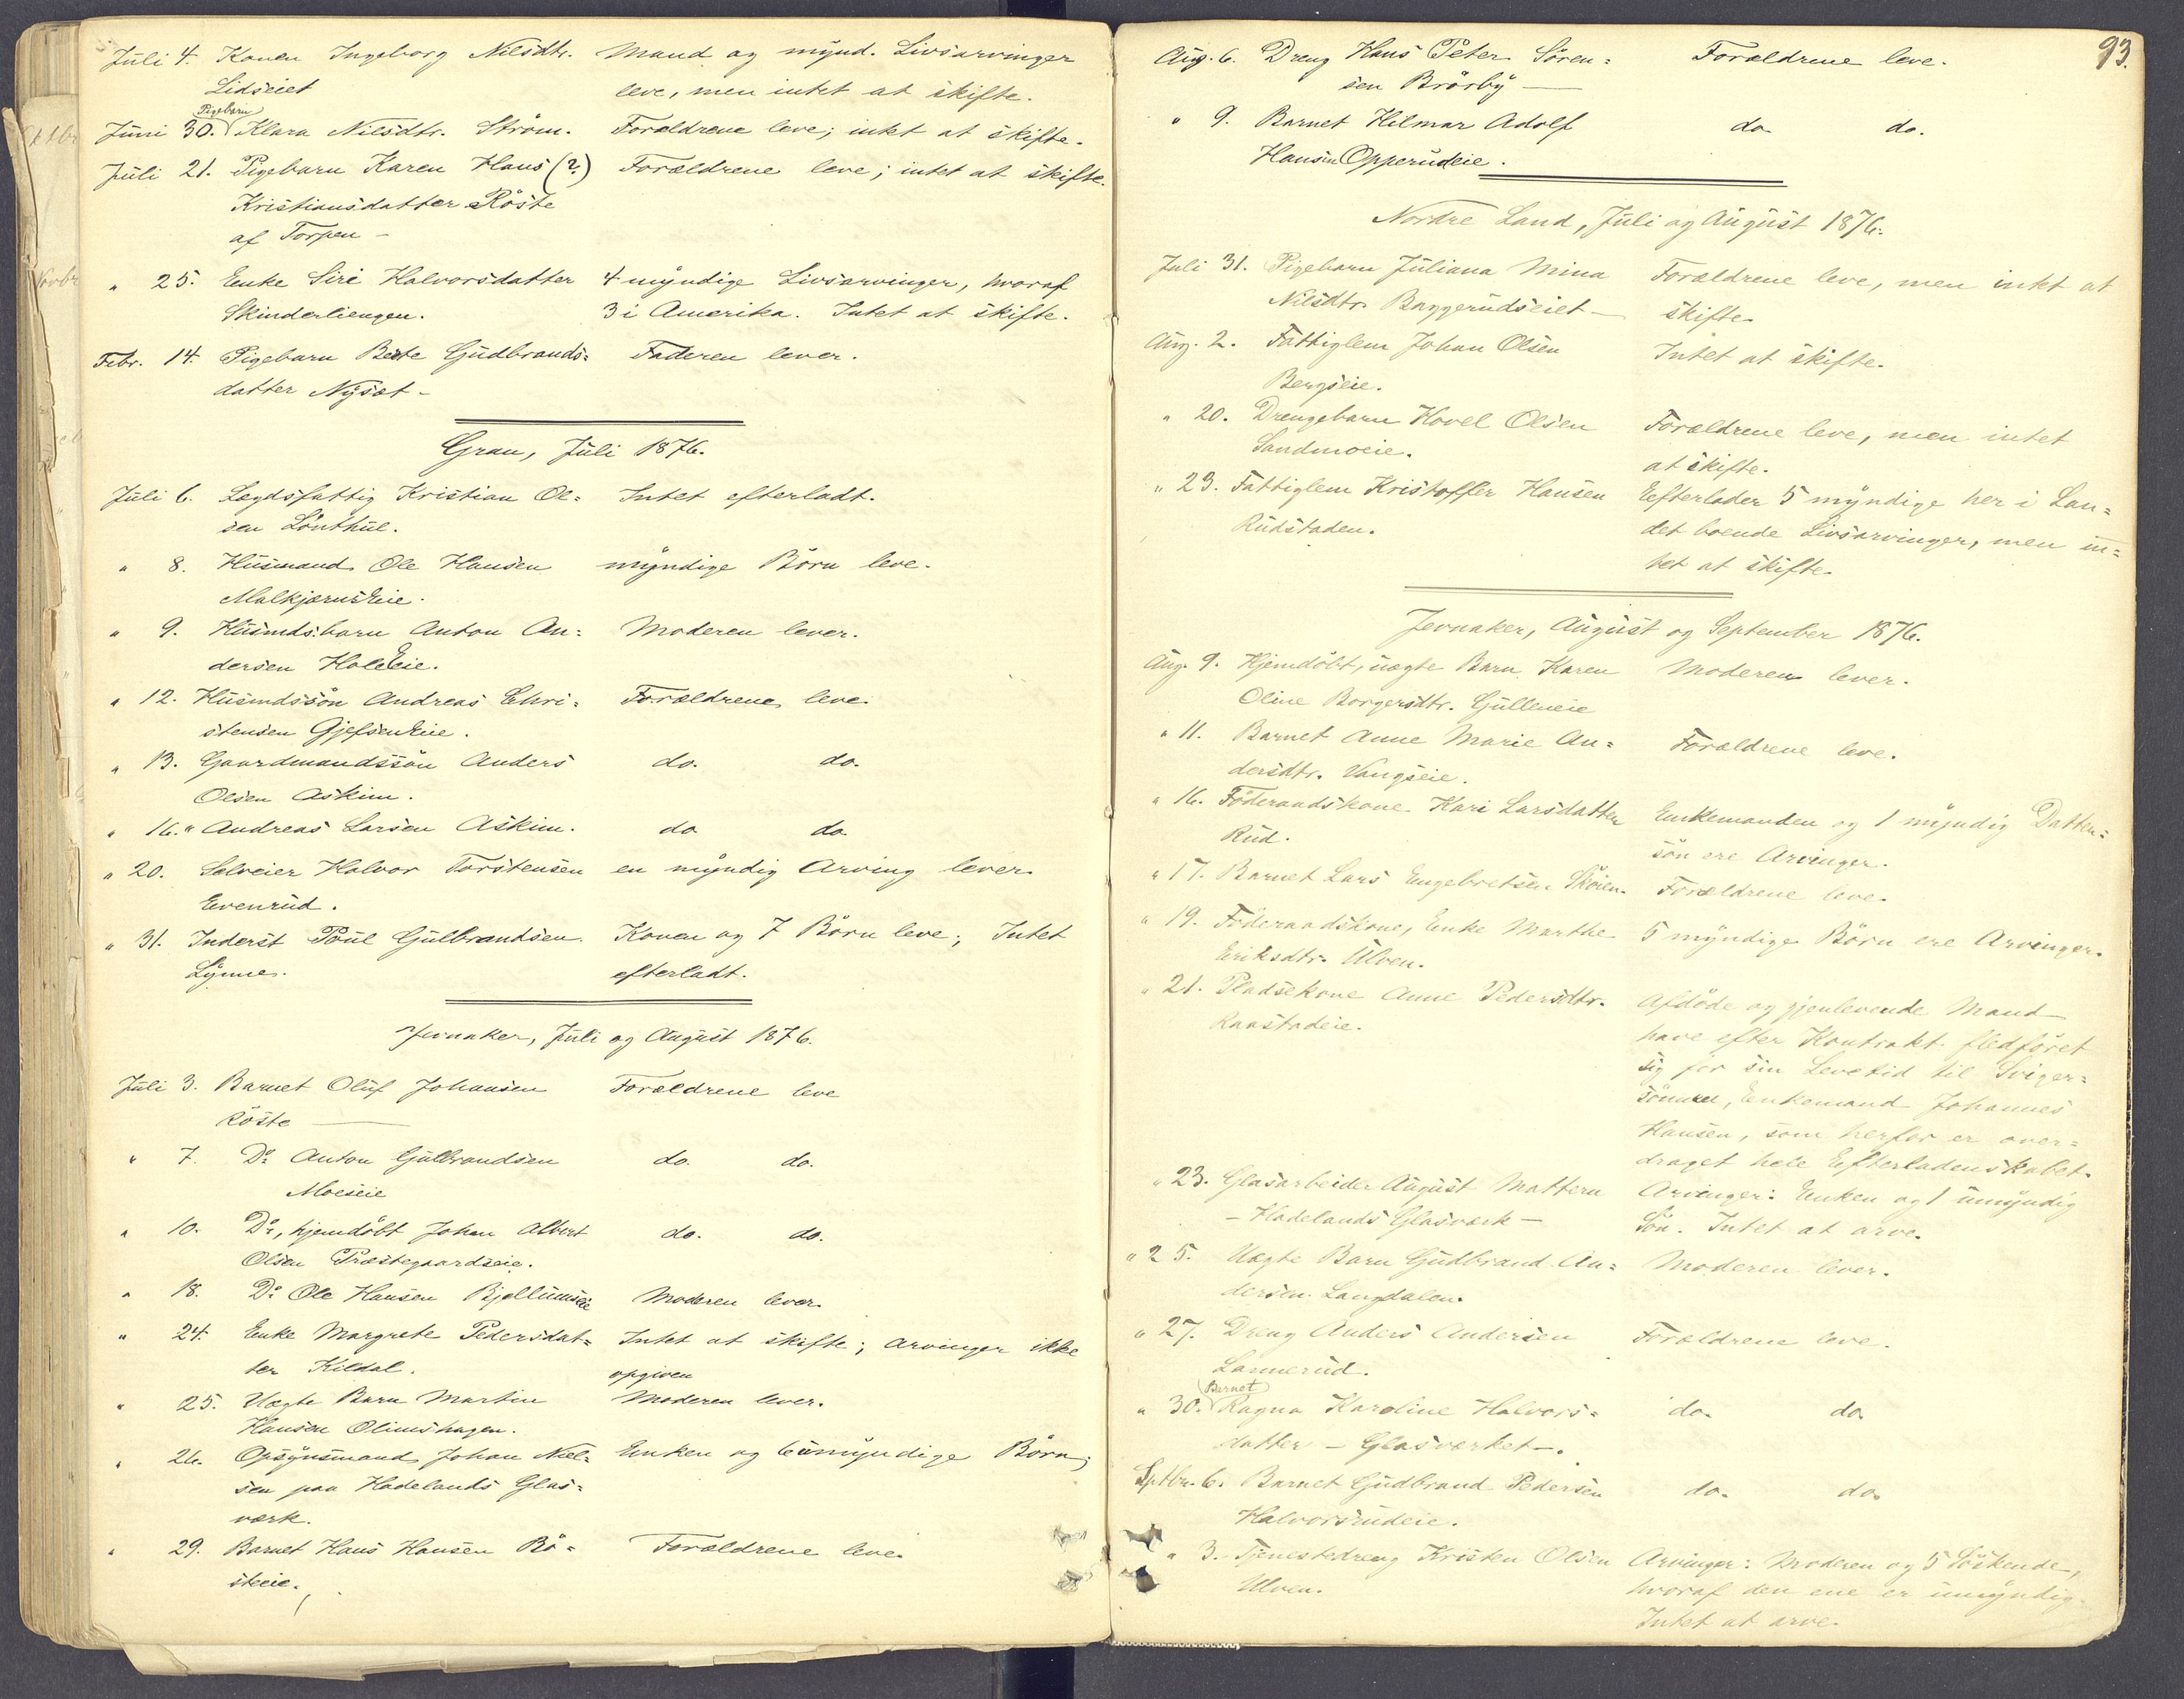 Juli 4. Konen Ingeborg Nilsdtr. Mand og mynd. Livsarvinger
Lidseiet leve, men intet at skifte.
Pigebarn
Juni 30. Klara Nilsdtr. Strøm. Forældrene leve; intet at skifte.
Juli 21. Pigebarn Karen Hans (?) Forældrene leve; intet at skifte.
Kristiansdatter Röste
af Torpen -
" 25. Enke Siri Halvorsdatter 4 myndige Livsarvinger, hvoraf
Skinderliengen. 3 i Amerika. Intet at skifte.
Febr. 14. Pigebarn Beate Gudbrands= Faderen lever.
datter Nysæt -
Gran, Juli 1876.
Juli 6. Lægdsfattig Kristian Ol= Intet efterladt.
sen Lönthul.
" 8. Husmand Ole Hansen myndige Börn leve.
Malkjærnseie.
" 9. Husmdsbarn Anton An= Moderen lever.
dersen Holeeie.
" 12. Husmdssön Andreas Chri= Forældrene leve.
stensen Gjefseneie.
" 13. Gaardmandssön Anders do. do.
Olsen Askim.
" 16. " Andreas Larsen Askim. do do.
" 20. Selveier Halvor Torstensen en myndig Arving lever.
Evenrud.
" 31. Inderst Poul Gulbrandsen Konen og 7 Börn leve; Intet
Lynne. efterladt.
Jevnaker, Juli og August 1876.
Juli 3. Barnet Oluf Johansen Forældrene leve
Röste
" 7. Do Anton Gulbrandsen do. do.
Moeseie
" 10. Do, hjemdöbt Johan Albert do. do.
Olsen Præstegaardseie.
" 18. Do Ole Hansen Bjellumseie Moderen lever.
" 24. Enke Margrete Pedersdat= Intet at skifte; Arvinger ikke
ter Kildal. opgiven
" 25. Uægte Barn Martin Moderen lever.
Hansen Olimshagen.
" 26. Opsynsmand Johan Niel= Enken og 6 umyndige Börn;
sen paa Hadelands Glas=
værk.
" 29. Barnet Hans Hansen Rö= Forældrene leve.
steeie.
93.
Aug. 6. Dreng Hans Peter Sören= Forældrene leve.
sen Brörby
" 9. Barnet Hilmar Adolf do do.
Hansen Opperudeie.
Nordre Land, Juli og August 1876.
Juli 31. Pigebarn Juliana Mina Forældrene leve, men intet at
Nilsdtr. Baggerudseiet - skifte.
Aug. 2. Fattiglem Johan Olsen Intet at skifte.
Bergseie.
" 20. Drengebarn Hovel Olsen Forældrene leve, men intet
Sandmoeie. at skifte.
" 23. Fattiglem Kristoffer Hansen Eefterlader 5 myndige her i Lan=
Rudstaden. det boende Livsarvinger, men in=
tet at skifte.
Jevnaker, August og September 1876.
Aug. 9. Hjemdöbt, uægte Barn Karen Moderen lever.
Oline Borgersdtr. Gulleneie
" 11. Barnet Anne Marie An= Forældrene leve.
dersdtr. Vangseie.
" 16. Föderaadskone Kari Larsdatter Enkemanden og 1 myndig Datter=
Rud. sön ere Arvinger.
" 17. Barnet Lars Engebretsen Skøien. Forældrene leve.
" 19. Föderaadskone, Enke Marthe 5 myndige Börn ere Arvinger.
Eriksdtr. Ulven.
" 21. Pladsekone Anne Pedersdtr. Afdöde og gjenlevende Mand
Raastadeie. have efter Kontrakt fledföret
sig for sin Levetid til Sviger=
sönnen, Enkemand Johannes
Hansen, som herfor er over=
draget hele Efterladenskabet.
" 23. Glasarbeider August Mattern Arvinger: Enken og 1 umyndig
- Hadelands Glasværk - Sön. Intet at arve.
" 25. Uægte Barn Gudbrand An= Moderen lever.
dersen Langdalen.
" 27. Dreng Anders Andersen Forældrene leve.
Lannerud.
Barnet
" 30. Ragna Karoline Halvors= do. do.
datter - Glasværket -.
Sptbr. 6. Barnet Gudbrand Pedersen do. do.
Halvorsrudeie.
" 3. Tjenestedreng Kristen Olsen Arvinger: Moderen og 5 Söskende,
Ulven. hvoraf den ene er umyndig.
Intet at arve.